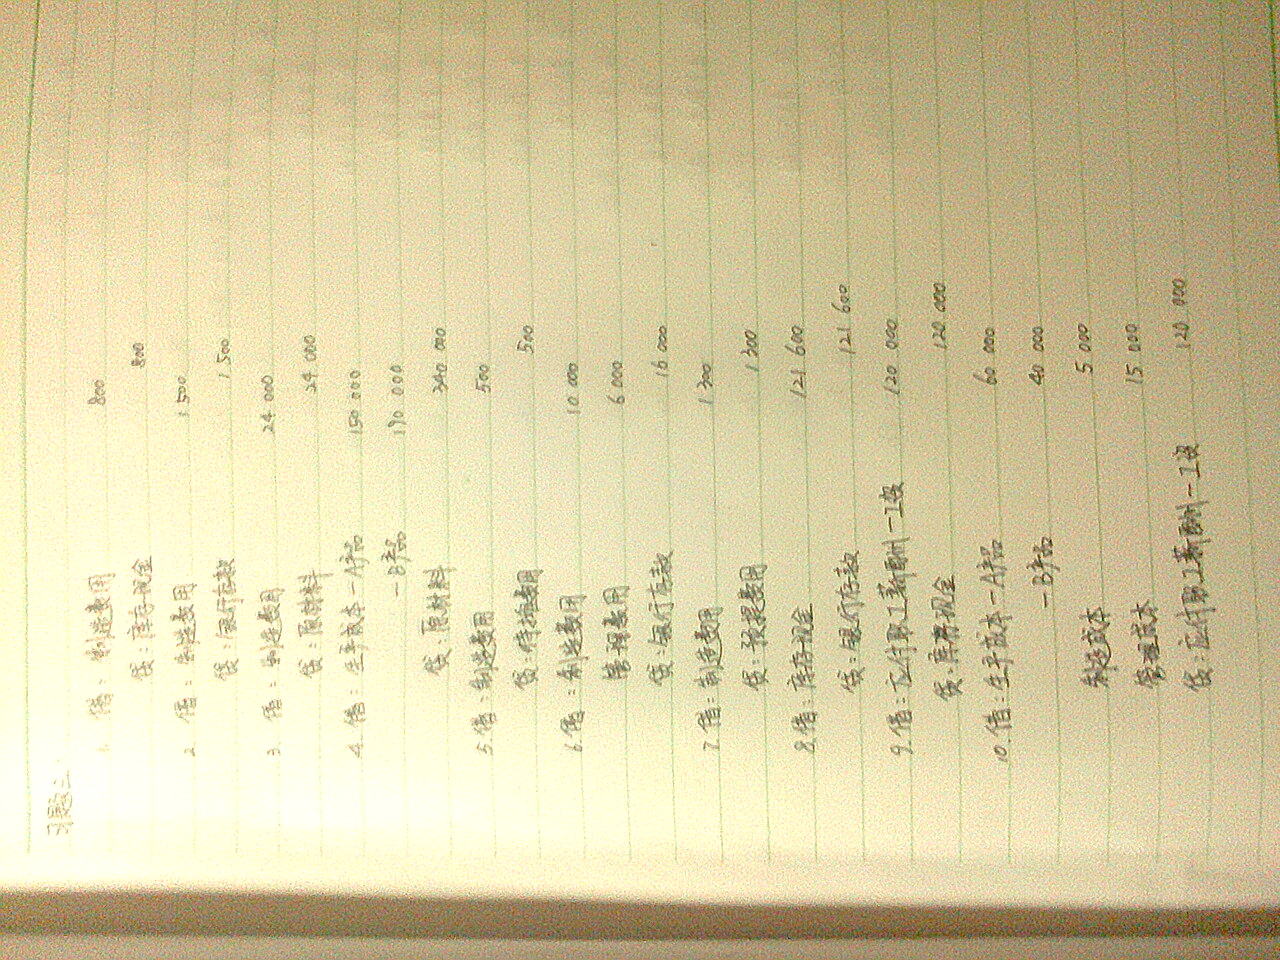 习题三
1. 借：制造费用 800
贷：库存现金 800
2 借：制造费用 1 500
贷：银行存款 1 500
3. 借：制造费用 24 000
贷：原材料 24 000
4. 借：生产成本—A产品 150 000
—B产品 190 000
贷：原材料 340 000
5. 借：制造费用 500
贷：待摊费用 500
6. 借：制造费用 10 000
管理费用 6 000
贷：银行存款 16 000
7 借：制造费用 1 200
贷：预提费用 1 200
8. 借：库存现金 121 600
贷：银行存款 121 600
9. 借：应付职工薪酬—工资 120 000
贷：库存现金 120 000
10 借：生产成本—A产品 60 000
—B产品 40 000
制造成本 5 000
管理成本 15 000
贷：应付职工薪酬—工资 120 000